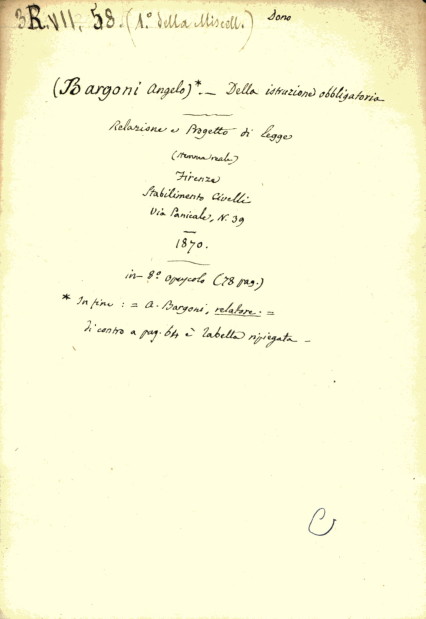 3R.VII. 58. (1.º della Miscell.) Dono
(Bargoni Angelo)*. — Della istruzione obbligatoria
Relazione e Progetto di legge
(stemma reale)
Firenze
Stabilimento Civelli
Via Panicale, N. 39
1870.
in-8º opuscolo (78 pag.)
* In fine : = A. Bargoni, relatore. =
Di contro a pag. 64 è Tabella ripiegata —
C